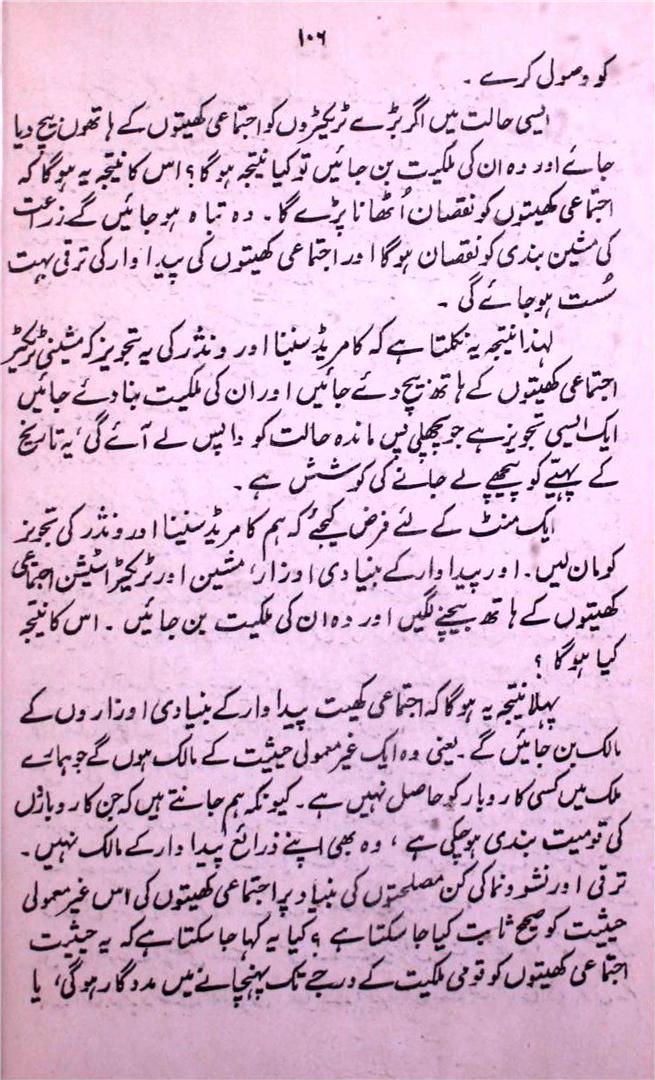 ۱۰۶
کو وصول کرے ۔
ایسی حالت میں اگر بڑے ٹریکٹروں کو اجتماعی کھیتوں کے ہاتھوں بیچ دیا
جائے اور وہ ان کی ملکیت بن جائیں تو کیا نتیجہ ہو گا؟ اس کا نتیجہ یہ ہوگا کہ
اجتماعی کھیتوں کو نقصان اُٹھانا پڑے گا۔ وہ تباہ ہو جائیں گے زراعت
کی مشین بندی کو نقصان ہوگا اور اجتماعی کھیتوں کی پیداوار کی ترقی بہت
سُست ہو جائے گی ۔
لہذا نتیجہ یہ نکلتا ہے کہ کامریڈ سنینا اور ونڈر کی یہ تجویز کہ مشینی ٹریکٹر
اجتماعی کھیتوں کے ہاتھ بیچ دئے جائیں اور ان کی ملکیت بنا دئے جائیں
ایک ایسی تجویز ہے جو پچھلی پس ماندہ حالت کو واپس لے آئے گی، یہ تاریخ
کے پہیّے کو پیچھے لے جانے کی کوشش ہے ۔
ایک منٹ کے لئے فرض کیجئے کہ ہم کامریڈ سنینا اور ونڈر کی تجویز
کو مان لیں۔ اور پیداوار کے بنیادی اوزار، مشین اور ٹریکٹر اسٹیشن اجتماعی
کھیتوں کے ہاتھ بیچنے لگیں اور وہ ان کی ملکیت بن جائیں ۔ اس کا نتیجہ
کیا ہو گا ؟
پہلا نتیجہ یہ ہوگا کہ اجتماعی کھیت پیداوار کے بنیادی اوزاروں کے
مالک بن جائیں گے ۔ یعنی وہ ایک غیر معمولی حیثیت کے مالک ہوں گے جو ہمارے
ملک میں کسی کاروبار کو حاصل نہیں ہے۔ کیونکہ ہم جانتے ہیں کہ جن کاروباروں
کی قومیت بندی ہو چکی ہے ، وہ بھی اپنے ذرائع پیداوار کے مالک نہیں۔
ترقی اور نشوونما کی کن مصلحتوں کی بنیاد پر اجتماعی کھیتوں کی اس غیر معمولی
حیثیت کو صحیح ثابت کیا جا سکتا ہے ؟ کیا یہ کہا جا سکتا ہے کہ یہ حیثیت
اجتماعی کھیتوں کو قومی ملکیت کے درجے تک پہنچانے میں مددگار ہوگی، یا